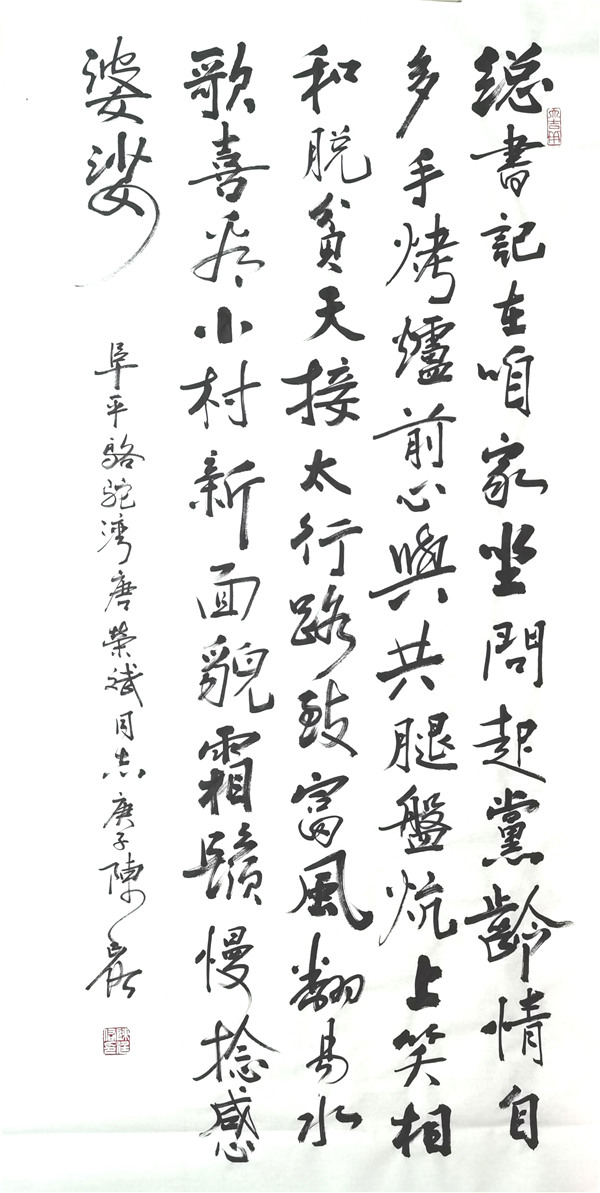 總書記在咱家坐問起黨齡情自
多手烤爐前心與共腿盤炕上笑相
和脫貧天接太行路致富風翻易水
歌喜看小村新面貌霜鬚慢捻感
婆娑
阜平駱駝灣唐榮斌同志庚子陳